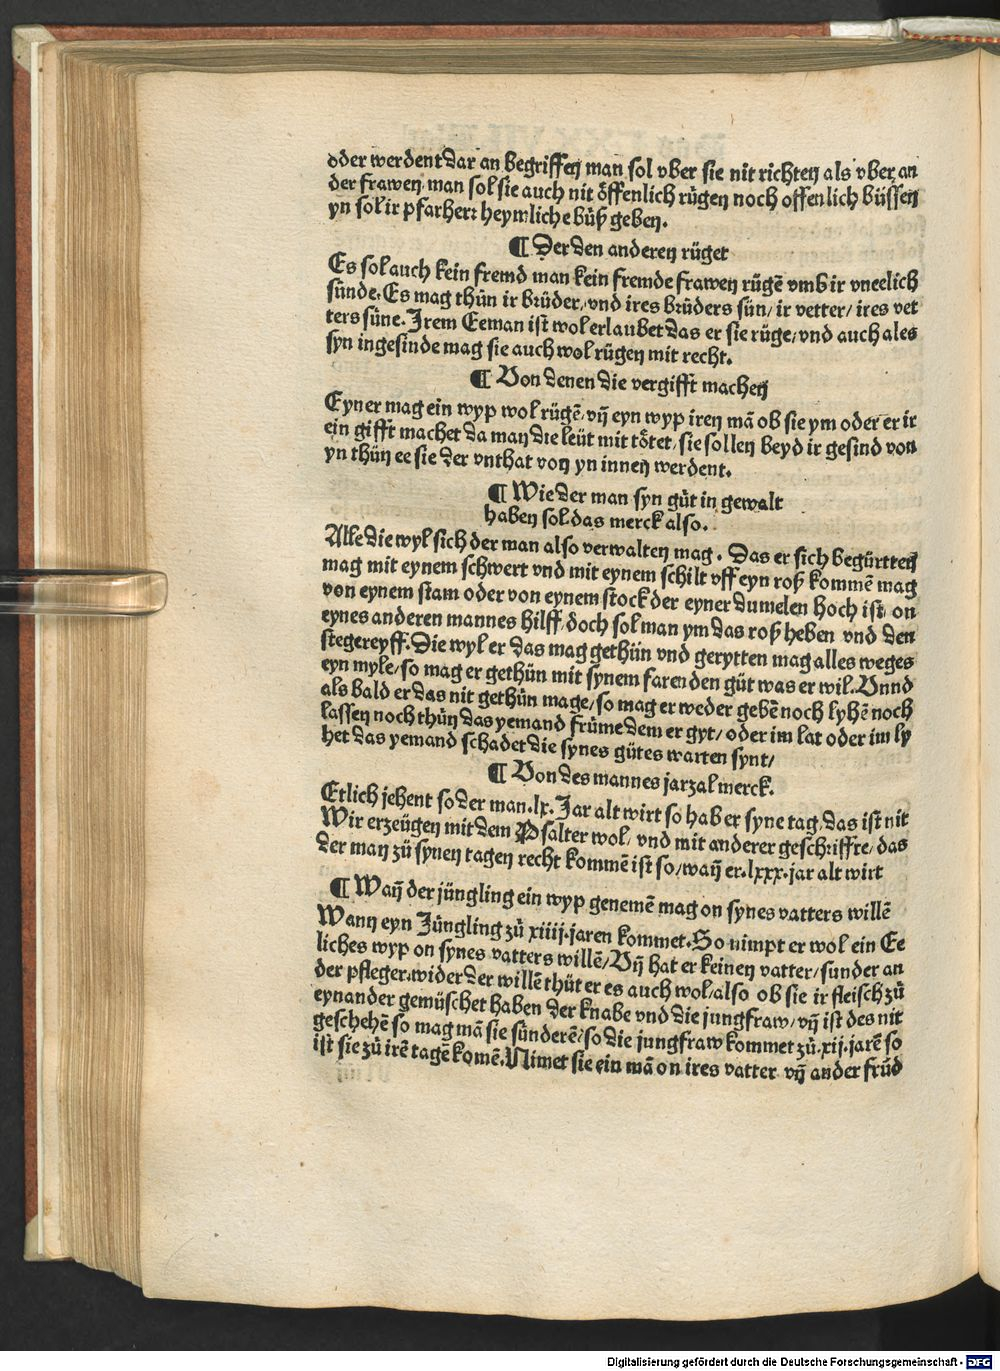 oder werdent dar an begriffen man sol vber sie nit richten als vber an
der frawen man sol sie auch nit öffenlich rügen noch offenlich büssen
yn sol ir pfarherr heymliche büß geben.
¶ Der den anderen rüget
Es sol auch kein fremd man kein fremde frawen rügē vmb ir vneelich
sünde. Es mag thůn ir brůder, vnd ires brůders sün/ ir vetter/ ires vet
ters süne. Irem Eeman ist wol erlaubet das er sie rüge/ vnd auch ales
syn ingesinde mag sie auch wol rügen mit recht.
¶ Von denen die vergifft machen
Eyner mag ein wyp wol rügē/ vn̄ eyn wyp iren mā ob sie ym oder er ir
ein gifft machet da man die leüt mit tötet/ sie sollen beyd ir gesind von
yn thůn ee sie der vnthat von yn innen werdent.
¶ Wie der man syn gůt in gewalt
haben sol das merck also.
Alle die wyl sich der man also verwalten mag. Das er sich begürtten
mag mit eynem schwert vnd mit eynem schilt vff eyn roß kommē mag
von eynem stam oder von eynem stock der eyner dumelen hoch ist on
eynes anderen mannes hilff/ doch sol man ym das roß heben vnd den
stegereyff. Die wyl er das mag gethůn vnd gerytten mag alles weges
eyn myle/ so mag er gethůn mit synem farenden gůt was er wil. Vnnd
als bald er das nit gethůn mage/ so mag er weder gebē noch lyhē noch
lassen noch thůn das yemand frūme dem er gyt/ oder im lat oder im ly
het das yemand schadet die synes gůtes warten synt/
¶ Von des mannes jarzal merck.
Etlich jehent so der man .lx. Jar alt wirt so hab er syne tag/ das ist nit
Wir erzeügen mit dem Psalter wol/ vnd mit anderer geschriffte/ das
der man zů synen tagen recht kommē ist so/ wan̄ er .lxxx. jar alt wirt
¶ Wan̄ der jüngling ein wyp genemē mag on synes vatters willē
Wann eyn Jüngling zů xiiij. jaren kommet. So nimpt er wol ein Ee
liches wyp on synes vatters willē/ Vn̄ hat er keinen vatter/ sunder an
der pfleger/ wider der willē thůt er es auch wol/ also ob sie ir fleisch zů
eynander gemüschet haben der knabe vnd die jungfraw/ vn̄ ist des nit
geschehē so mag mā sie sünderē/ so die jungfraw kommet zů .xij. jarē so
ist sie zů irē tagē komē. Nimet sie ein mā on ires vatter vn̄ ander frūd
Digitalisierung gefördert durch die Deutsche Forschungsgemeinschaft - DFG